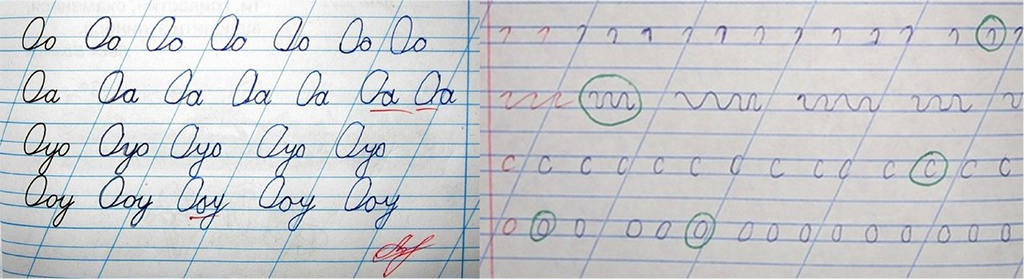 Оо Оо Оо Оо Оо Оо Оо
Оа Оа Оа Оа Оа Оа Оа
Оуо Оуо Оуо Оуо Оуо
Ооу Ооу Ооу Ооу Ооу
с с с с с с с с с с с с с с
о о о о о о о о о о о о о о о